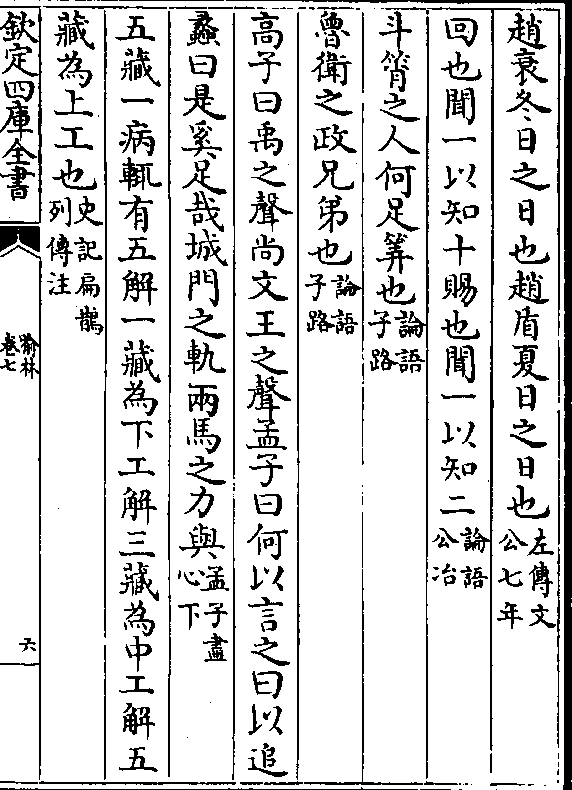 趙衰冬日之日也趙盾夏日之日也左傳文公七年
回也聞一以知十賜也聞一以知二論語公冶
斗筲之人何足筭也論語子路
魯衛之政兄弟也論語子路
高子曰禹之聲尚文王之聲孟子曰何以言之曰以追
蠡曰是奚足哉城門之軌兩馬之力與孟子盡心下
五藏一病輒有五解一藏為下工解三藏為中工解五
藏為上工也史記扁鵲列傳注
欽定四庫全書
喻林
卷七
六